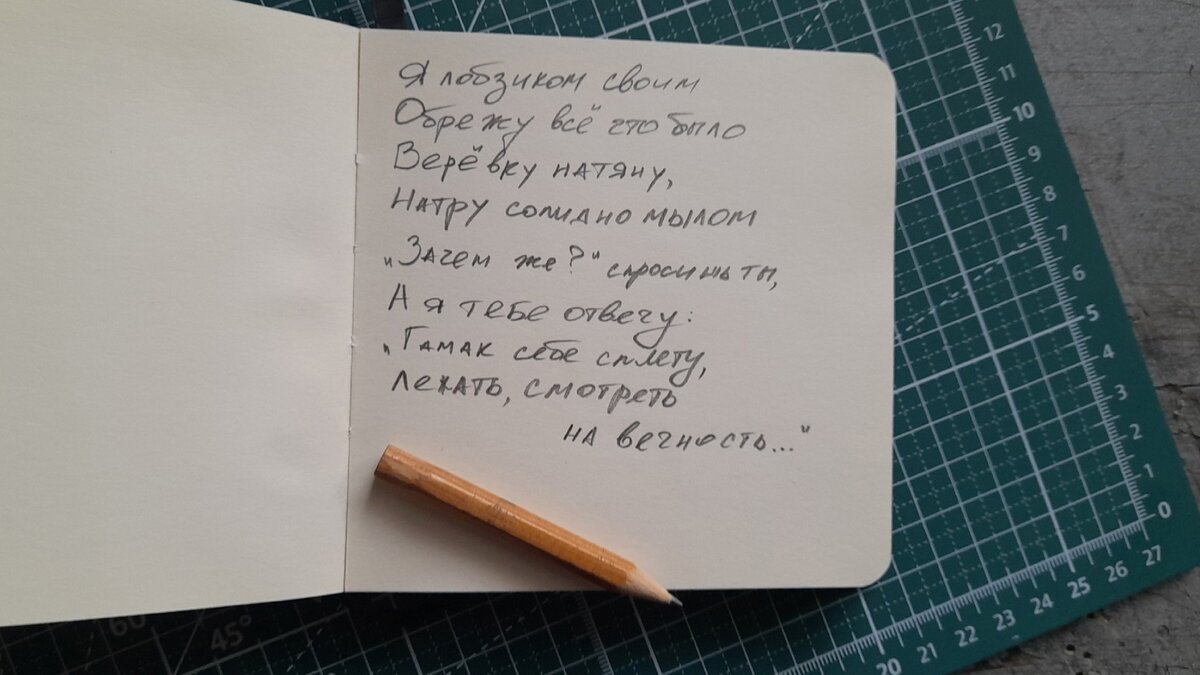 Я лобзиком своим
Обрежу всё что было
Верёвку натяну,
Натру солидно мылом
„Зачем же?“ спросишь ты,
А я тебе отвечу:
„Гамак себе сплету,
Лежать, смотреть
на вечность..."
12
11
10
9
8
7
6
5
4
3
2
1
0
27
26
25
24
23
22
21
20
60
45°